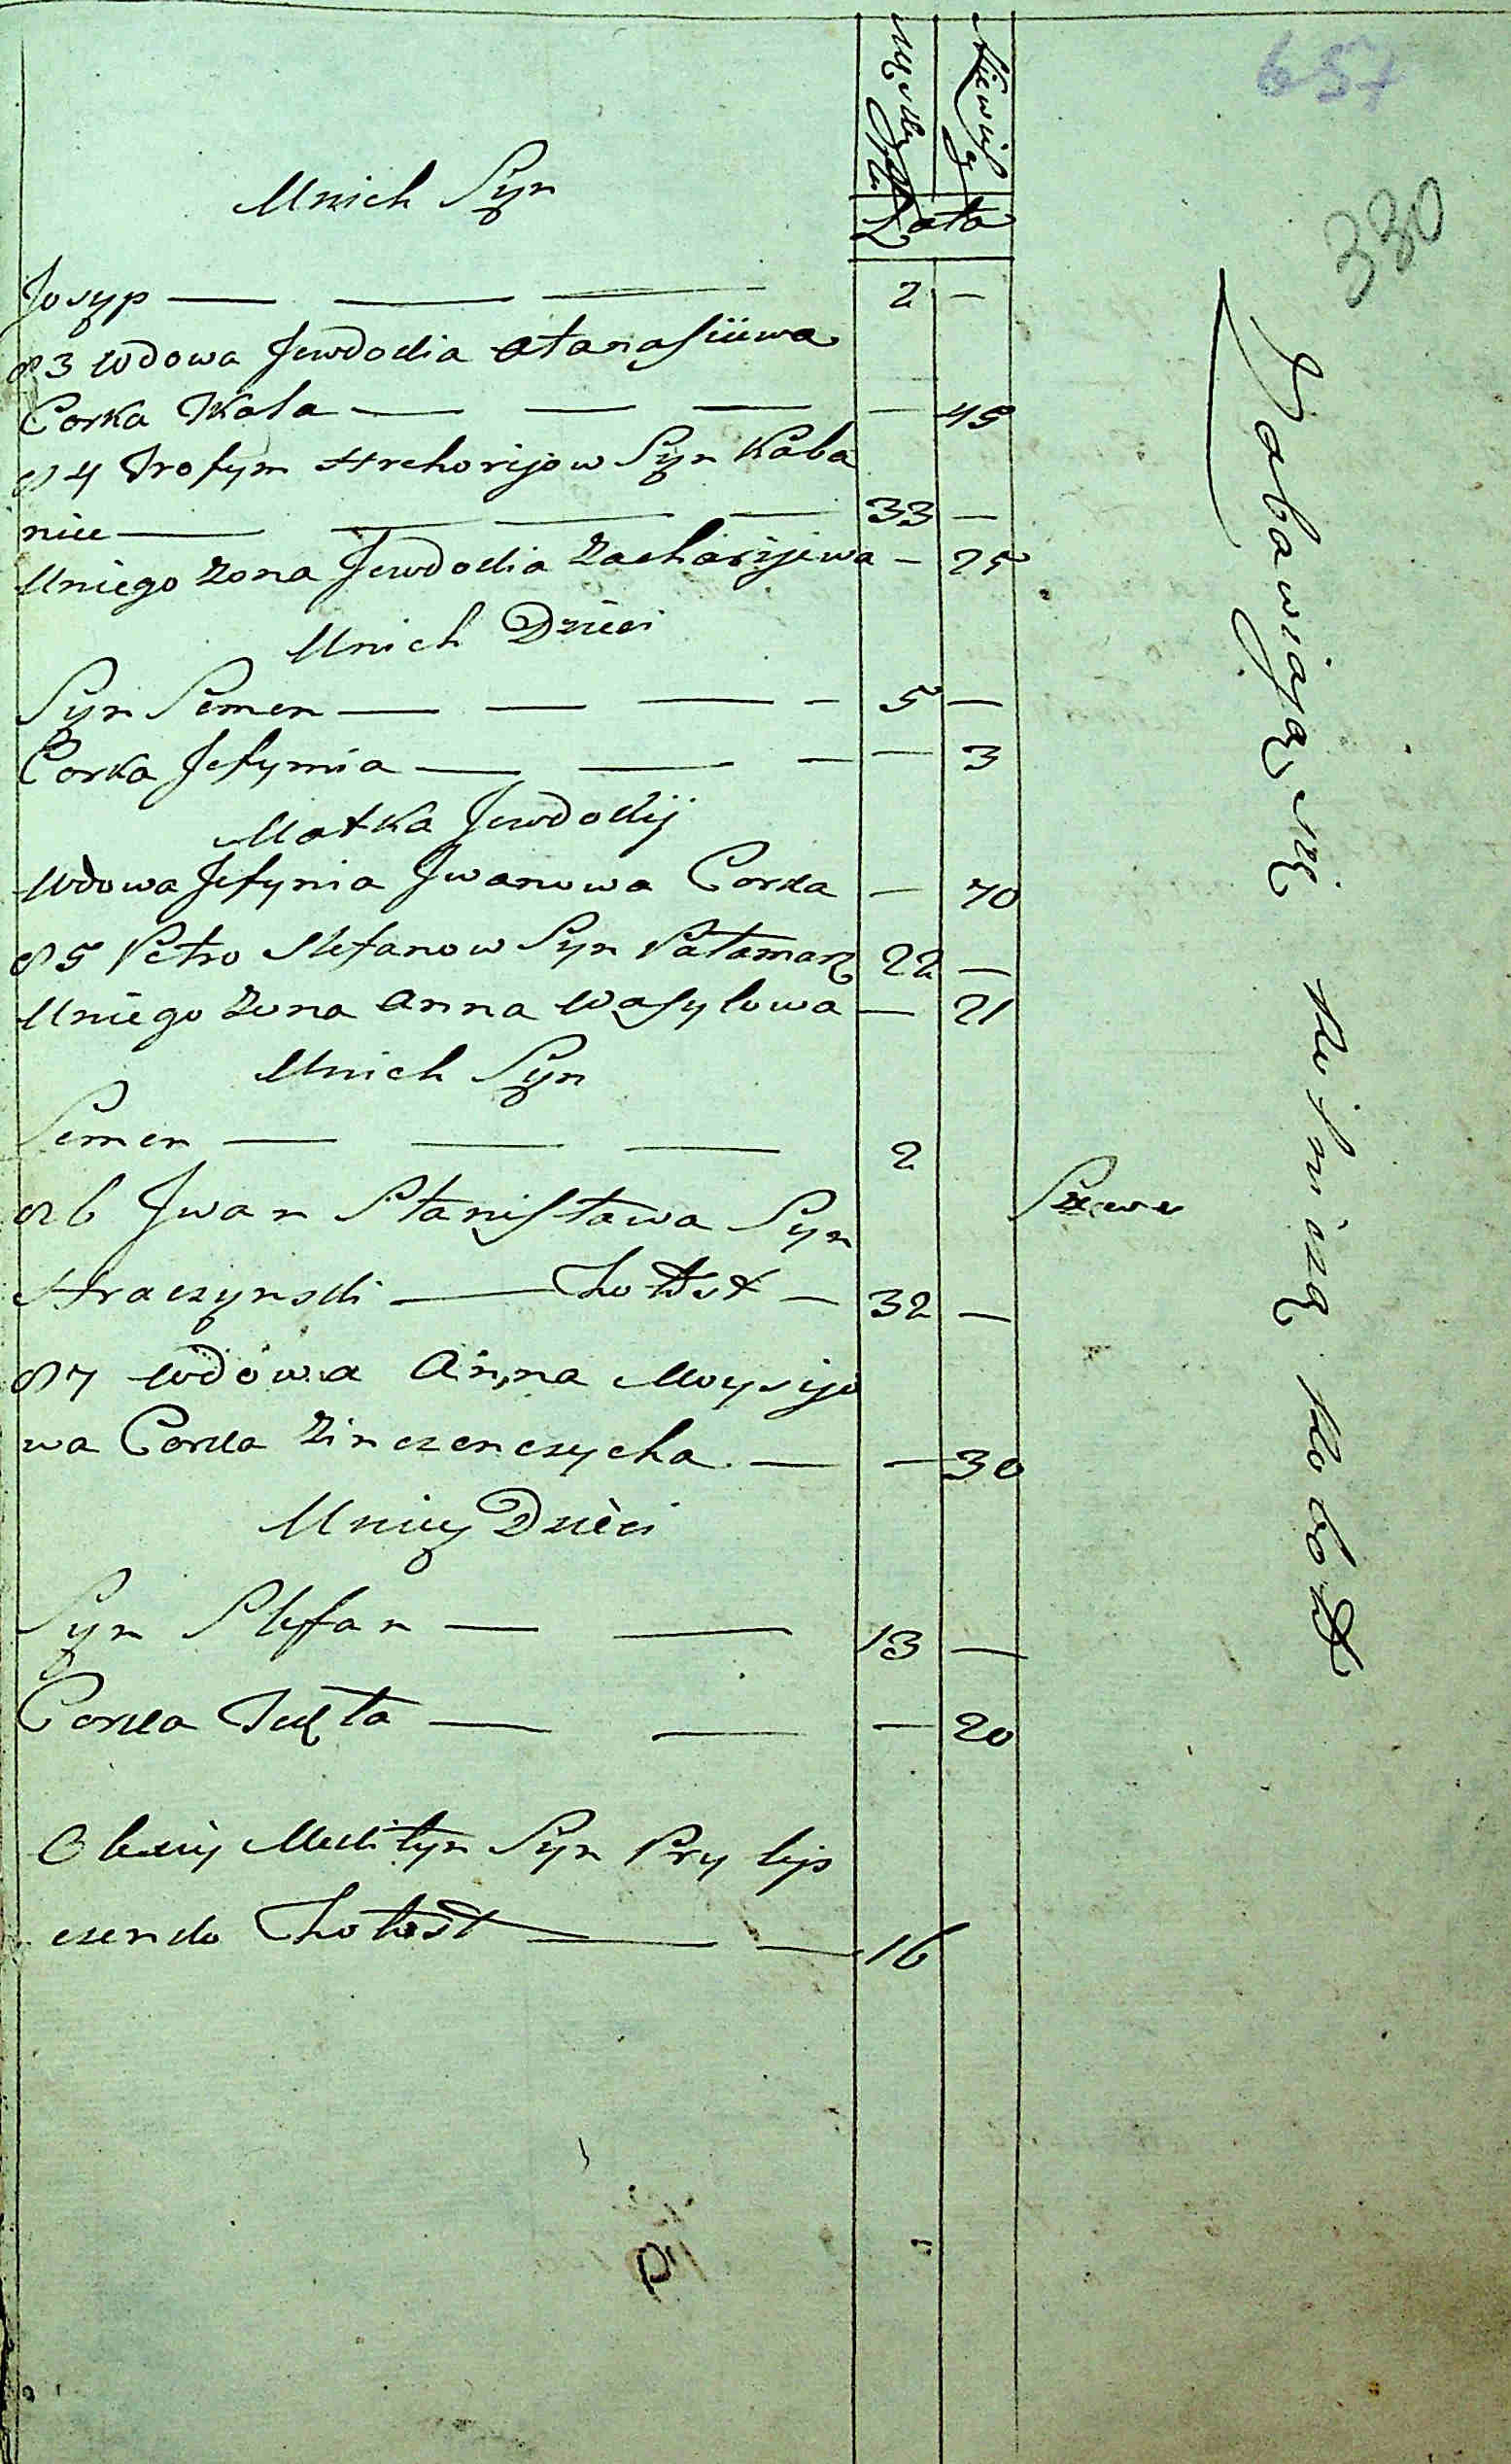 657
380
Męskiey Płci
Niewiescey
Lata
Unich Syn
Josyp — — — 2 —
83 Wdowa Jewdodia Atanasiiewa
Corka Tkala — — — — 45
84 Trofym Hrehorijow Syn Kaba
nicc — — — — 33 —
Uniego Zona Jewdodia Zacharijewa — 25
Unich Dzieci
Syn Semen — — — — 5 —
Corka Jefymia — — — — 3
Matka Jewdodij
Wdowa Jefymia Jwanowa Corka — 70
85 Petro Stefanow Syn Pałamarz 22 —
Uniego Zona Anna Wasylowa — 21
Unich Syn
Semen — — — 2
86 Jwan Stanisława Syn
Hraczynski — Chołost — 32 —
87 Wdowa Anna Moysijo
wa Corka Zinczenczycha — — 30
Uniey Dzieci
Syn Stefan — — 13 —
Corka Tekla — — — 20
Olexiy Mikityn Syn Prylip
czenko Chołost — — 16
Szewc
Zabawiaią się rolniczą robotą